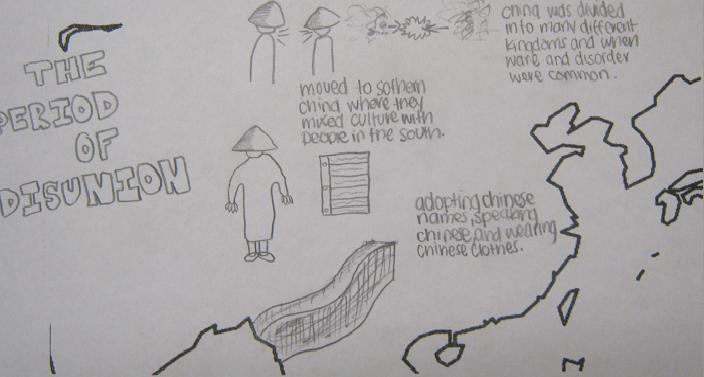 THE
PERIOD
OF
DISUNION
china was divided
into many different
kingdoms and when
ware and disorder
were common.
moved to sothern
china where they
mixed culture with
people in the south.
adopting chinese
names, speaking
chinese, and wearing
chinese clothes.